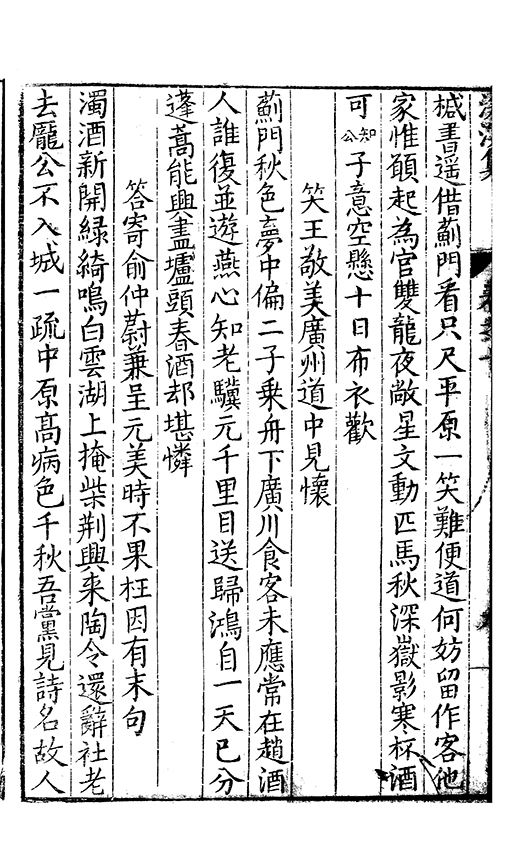 椷書遥借薊門看只尺平原一笑難便道何妨留作客他
家惟願起為官雙龍夜敞星文動匹馬秋深嶽影寒杯酒
可知公子意空懸十日布衣歡
笑王敬美廣州道中見懷
薊門秋色夢中偏二子乗舟下廣川食客未應常在趙酒
人誰復並遊燕心知老驥元千里目送歸鴻自一天已分
蓬蒿能興盡壚頭春酒却堪憐
答寄俞仲蔚兼呈元美時不果枉因有末句
濁酒新開緑綺鳴白雲湖上掩柴荆興来陶令還辭社老
去龐公不入城一疏中原高病色千秋吾黨見詩名故人